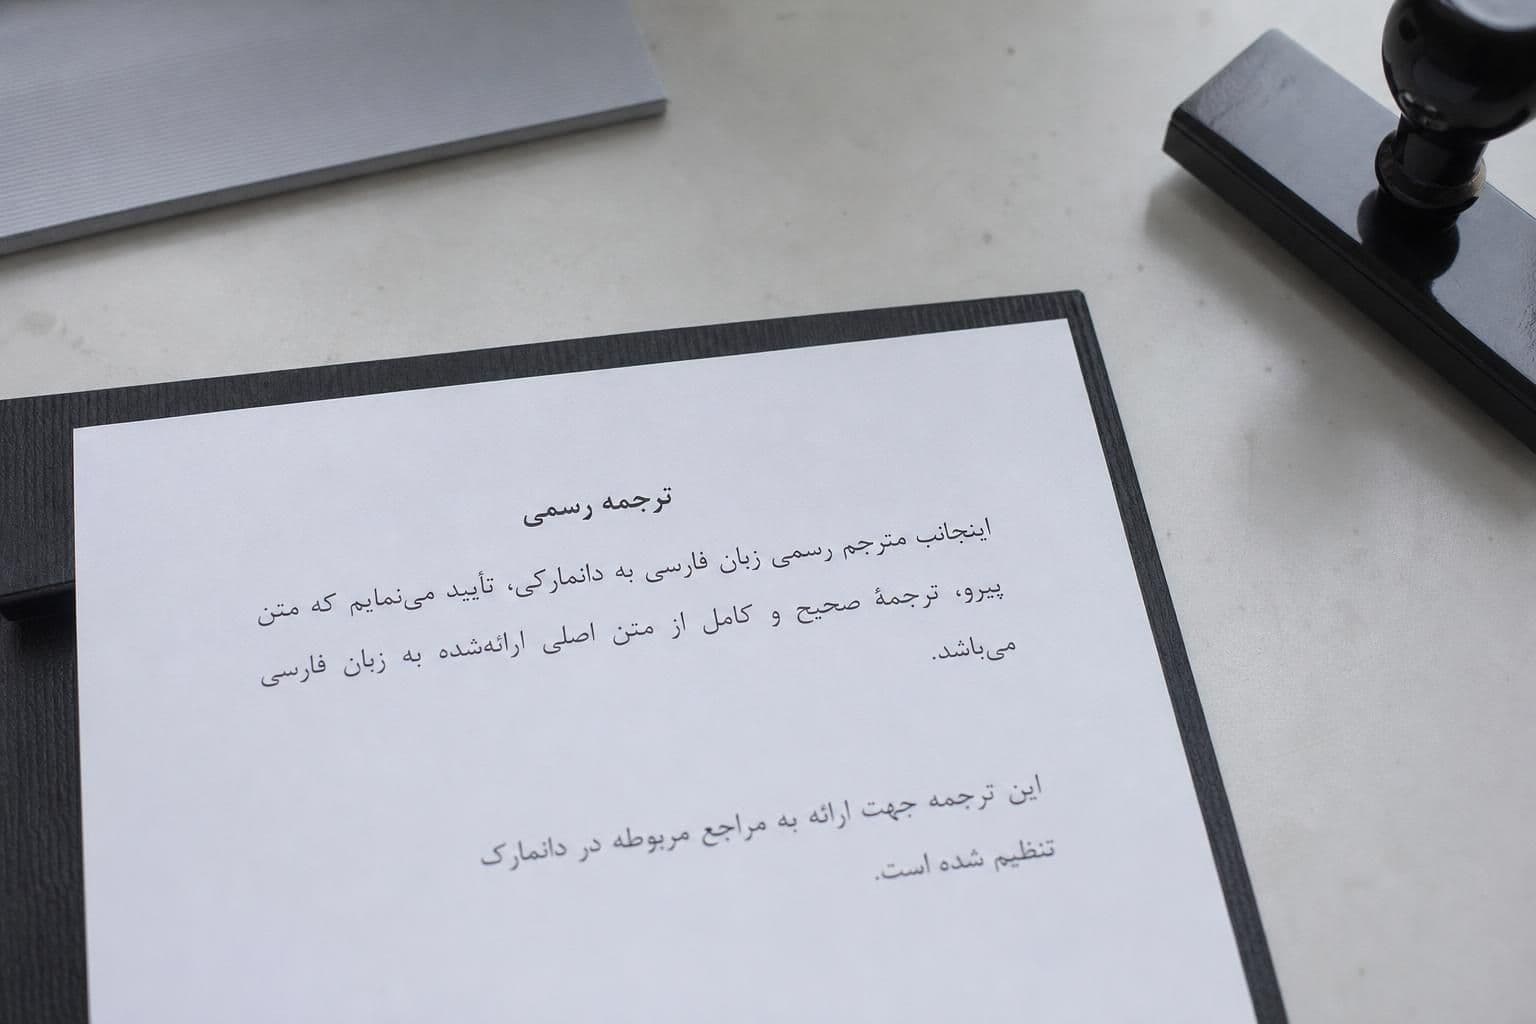 ترجمه رسمی
اینجانب مترجم رسمی زبان فارسی به دانمارکی، تأیید می‌نمایم که متن
پیرو، ترجمهٔ صحیح و کامل از متن اصلی ارائه‌شده به زبان فارسی
می‌باشد.
این ترجمه جهت ارائه به مراجع مربوطه در دانمارک
تنظیم شده است.